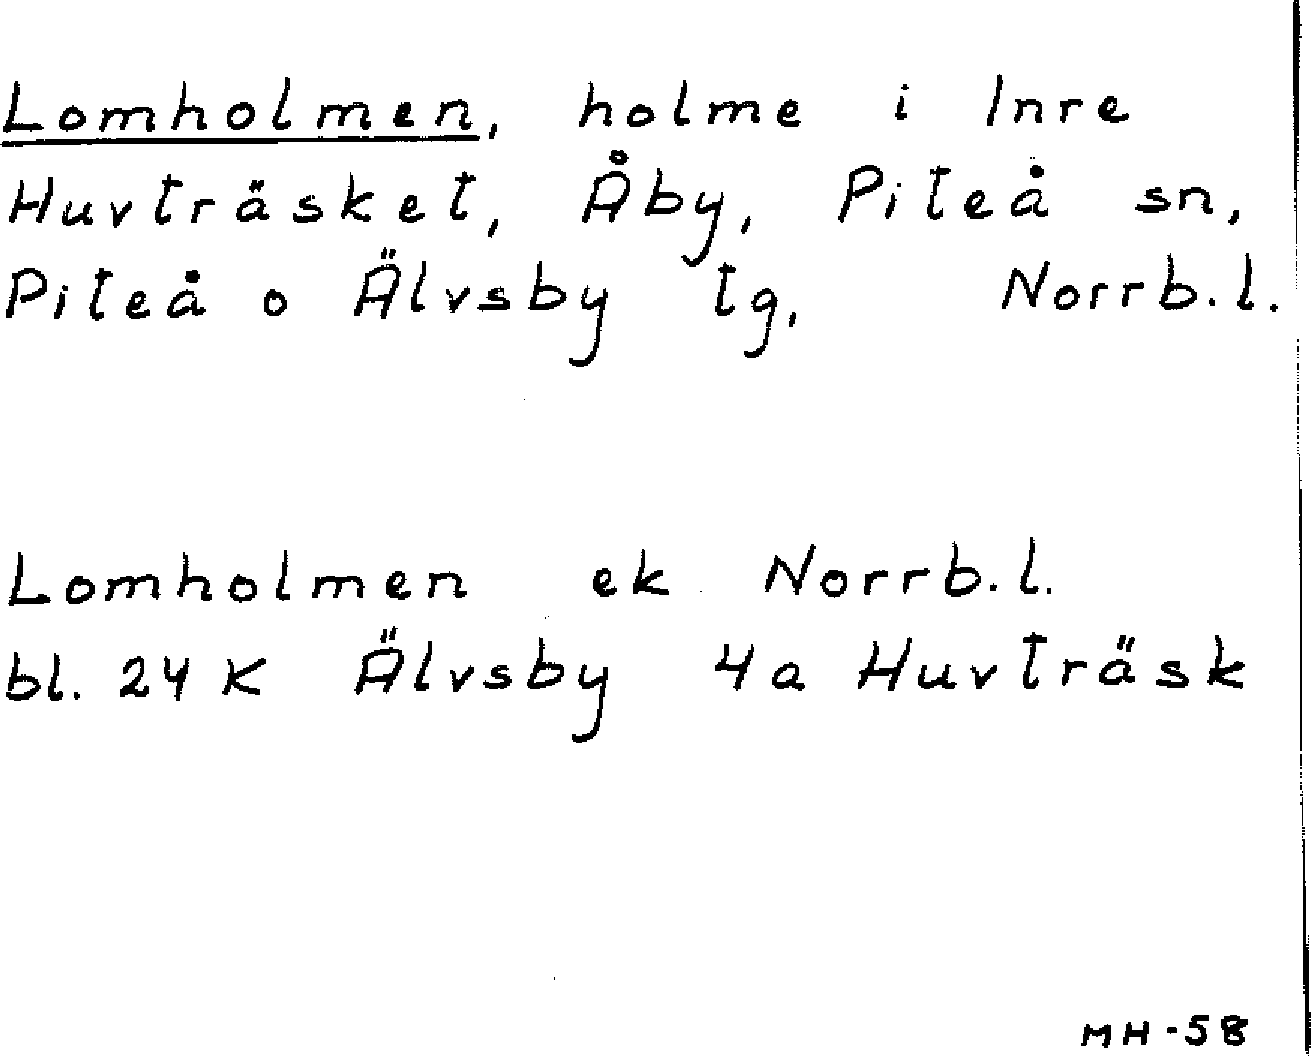 Lomholmen, holme i Inre
Huvträsket, Åby, Piteå sn,
Piteå o Älvsby tg, Norrb.l.
Lomholmen ek Norrb.l.
bl. 24 K Älvsby 4a Huvträsk
MH-58